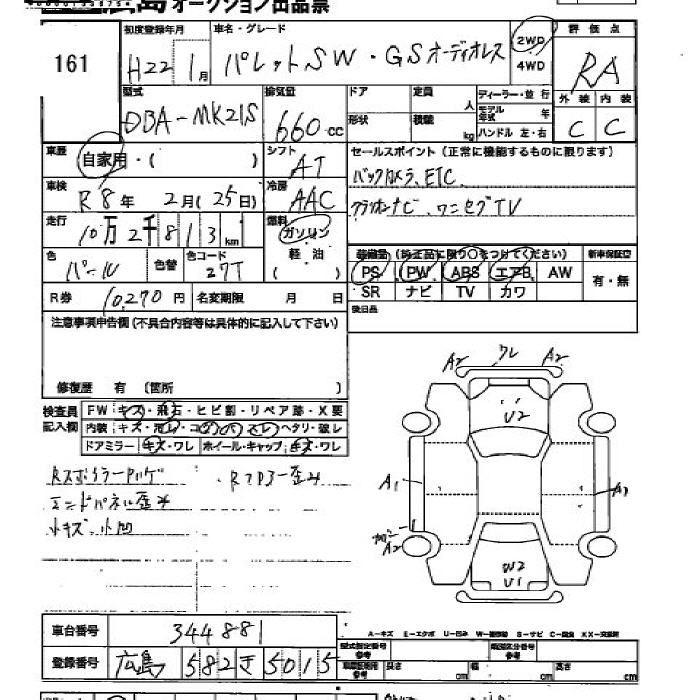 広島 オークション出品票
161
初度登録年月 車名・グレード 評価点
H22 1月 パレットSW・GSオーディオレス 2WD 4WD RA
型式 排気量 ドア 定員 人 ディーラー・並行 外装 内装
DBA-MK21S 660cc 形状 積載 kg モデル年式 年 ハンドル 左・右 C C
車歴 自家用・( ) シフト AT セールスポイント(正常に機能するものに限ります)
車検 R8年 2月(25日) 冷房 AAC バックカメラ、ETC
走行 10万2千813km 燃料 ガソリン 軽油 クラリオンナビ、ワンセグTV
色 パール 色替 色コード 27T
装備量(純正品に限り○をつけてください) 新車保証空
PS PW ABS エアB AW 有・無
SR ナビ TV カワ
R券 10,270円 名変期限 月 日 後日品
注意事項申告欄(不具合内容等は具体的に記入して下さい)
修復歴 有 〔箇所 〕
検査員記入欄 FW キズ・飛石・ヒビ割・リペア跡・X要
内装
ドアミラー キズ・ワレ ホイール・キャップ キズ・ワレ
エンドパネル歪み
小キズ・小凹
A2 ワレ A2
U2
A1
A2
W2
U1
A-キズ E-エクボ U-凹み
車台番号 344881
登録番号 広島 582 き 5015
型式指定番号 参考 類別区分番号 参考
長さ cm 幅 cm 高さ cm